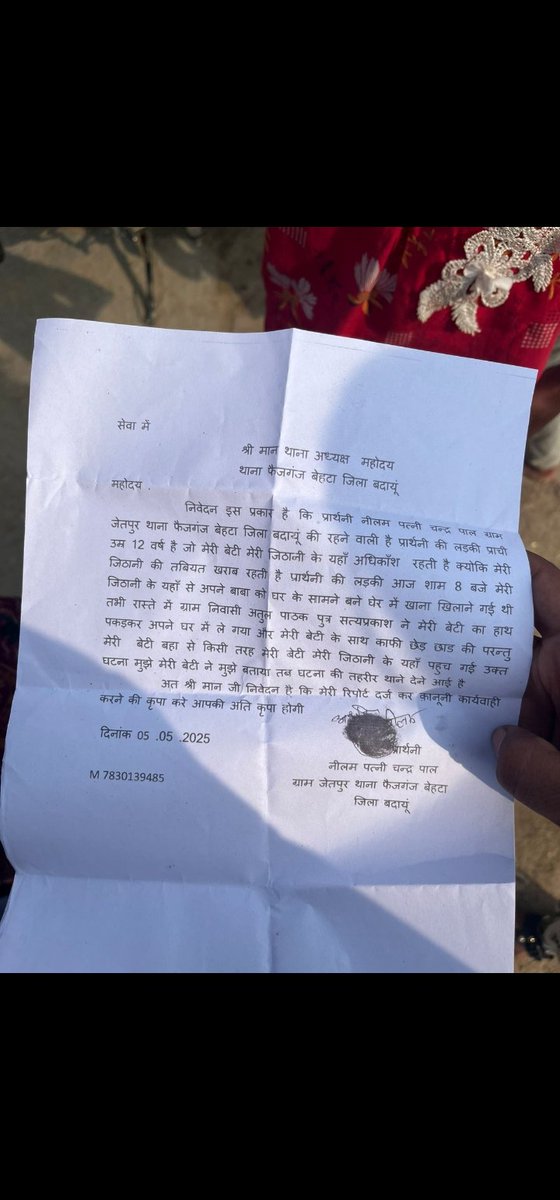 सेवा में
श्री मान थाना अध्यक्ष महोदय
थाना फैजगंज बेहटा जिला बदायूं
महोदय .
निवेदन इस प्रकार है कि प्रार्थनी नीलम पत्नी चन्द्र पाल ग्राम
जेतपुर थाना फैजगंज बेहटा जिला बदायूं की रहने वाली है प्रार्थनी की लड़की प्राची
उम्र 12 वर्ष है जो मेरी बेटी मेरी जिठानी के यहाँ अधिकाँश रहती है क्योकि मेरी
जिठानी की तबियत खराब रहती है प्रार्थनी की लड़की आज शाम 8 बजे मेरी
जिठानी के यहाँ से अपने बाबा को घर के सामने बने घेर में खाना खिलाने गई थी
तभी रास्ते में ग्राम निवासी अतुल पाठक पुत्र सत्यप्रकाश ने मेरी बेटी का हाथ
पकड़कर अपने घर में ले गया और मेरी बेटी के साथ काफी छेड़ छाड की परन्तु
मेरी बेटी बहा से किसी तरह मेरी बेटी मेरी जिठानी के यहाँ पहुच गई उक्त
घटना मुझे मेरी बेटी ने मुझे बताया तब घटना की तहरीर थाने देने आई है
अत श्री मान जी निवेदन है कि मेरी रिपोर्ट दर्ज कर क़ानूनी कार्यवाही
करने की कृपा करे आपकी अति कृपा होगी
दिनांक 05 .05 .2025
प्रार्थनी
नीलम पत्नी चन्द्र पाल
M 7830139485
ग्राम जेतपुर थाना फैजगंज बेहटा
जिला बदायूं